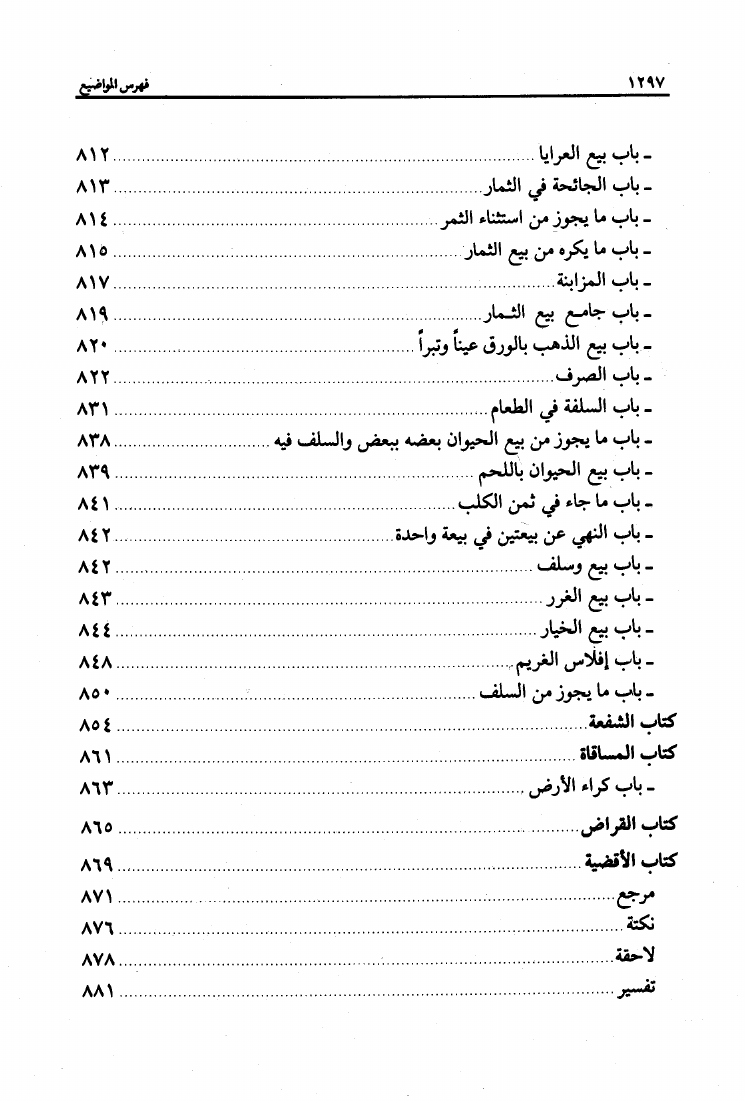 ١٢٩٧ فهرس المواضيع
ـ باب بيع العرايا ٨١٢
ـ باب الجائحة في الثمار ٨١٣
ـ باب ما يجوز من استثناء الثمر ٨١٤
ـ باب ما يكره من بيع الثمار ٨١٥
ـ باب المزابنة ٨١٧
ـ باب جامع بيع الثمار ٨١٩
ـ باب بيع الذهب بالورق عيناً وتبراً ٨٢٠
ـ باب الصرف ٨٢٢
ـ باب السلفة في الطعام ٨٣١
ـ باب ما يجوز من بيع الحيوان بعضه ببعض والسلف فيه ٨٣٨
ـ باب بيع الحيوان باللحم ٨٣٩
ـ باب ما جاء في ثمن الكلب ٨٤١
ـ باب النهي عن بيعتين في بيعة واحدة ٨٤٢
ـ باب بيع وسلف ٨٤٢
ـ باب بيع الغرر ٨٤٣
ـ باب بيع الخيار ٨٤٤
ـ باب إفلاس الغريم ٨٤٨
ـ باب ما يجوز من السلف ٨٥٠
كتاب الشفعة ٨٥٤
كتاب المساقاة ٨٦١
ـ باب كراء الأرض ٨٦٣
كتاب القراض ٨٦٥
كتاب الأقضية ٨٦٩
مرجع ٨٧١
نكتة ٨٧٦
لاحقة ٨٧٨
تفسير ٨٨١